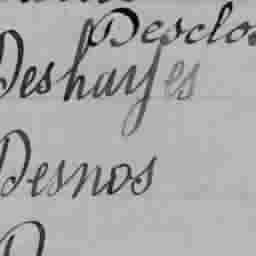 Desclo
Deshayes
Desnos